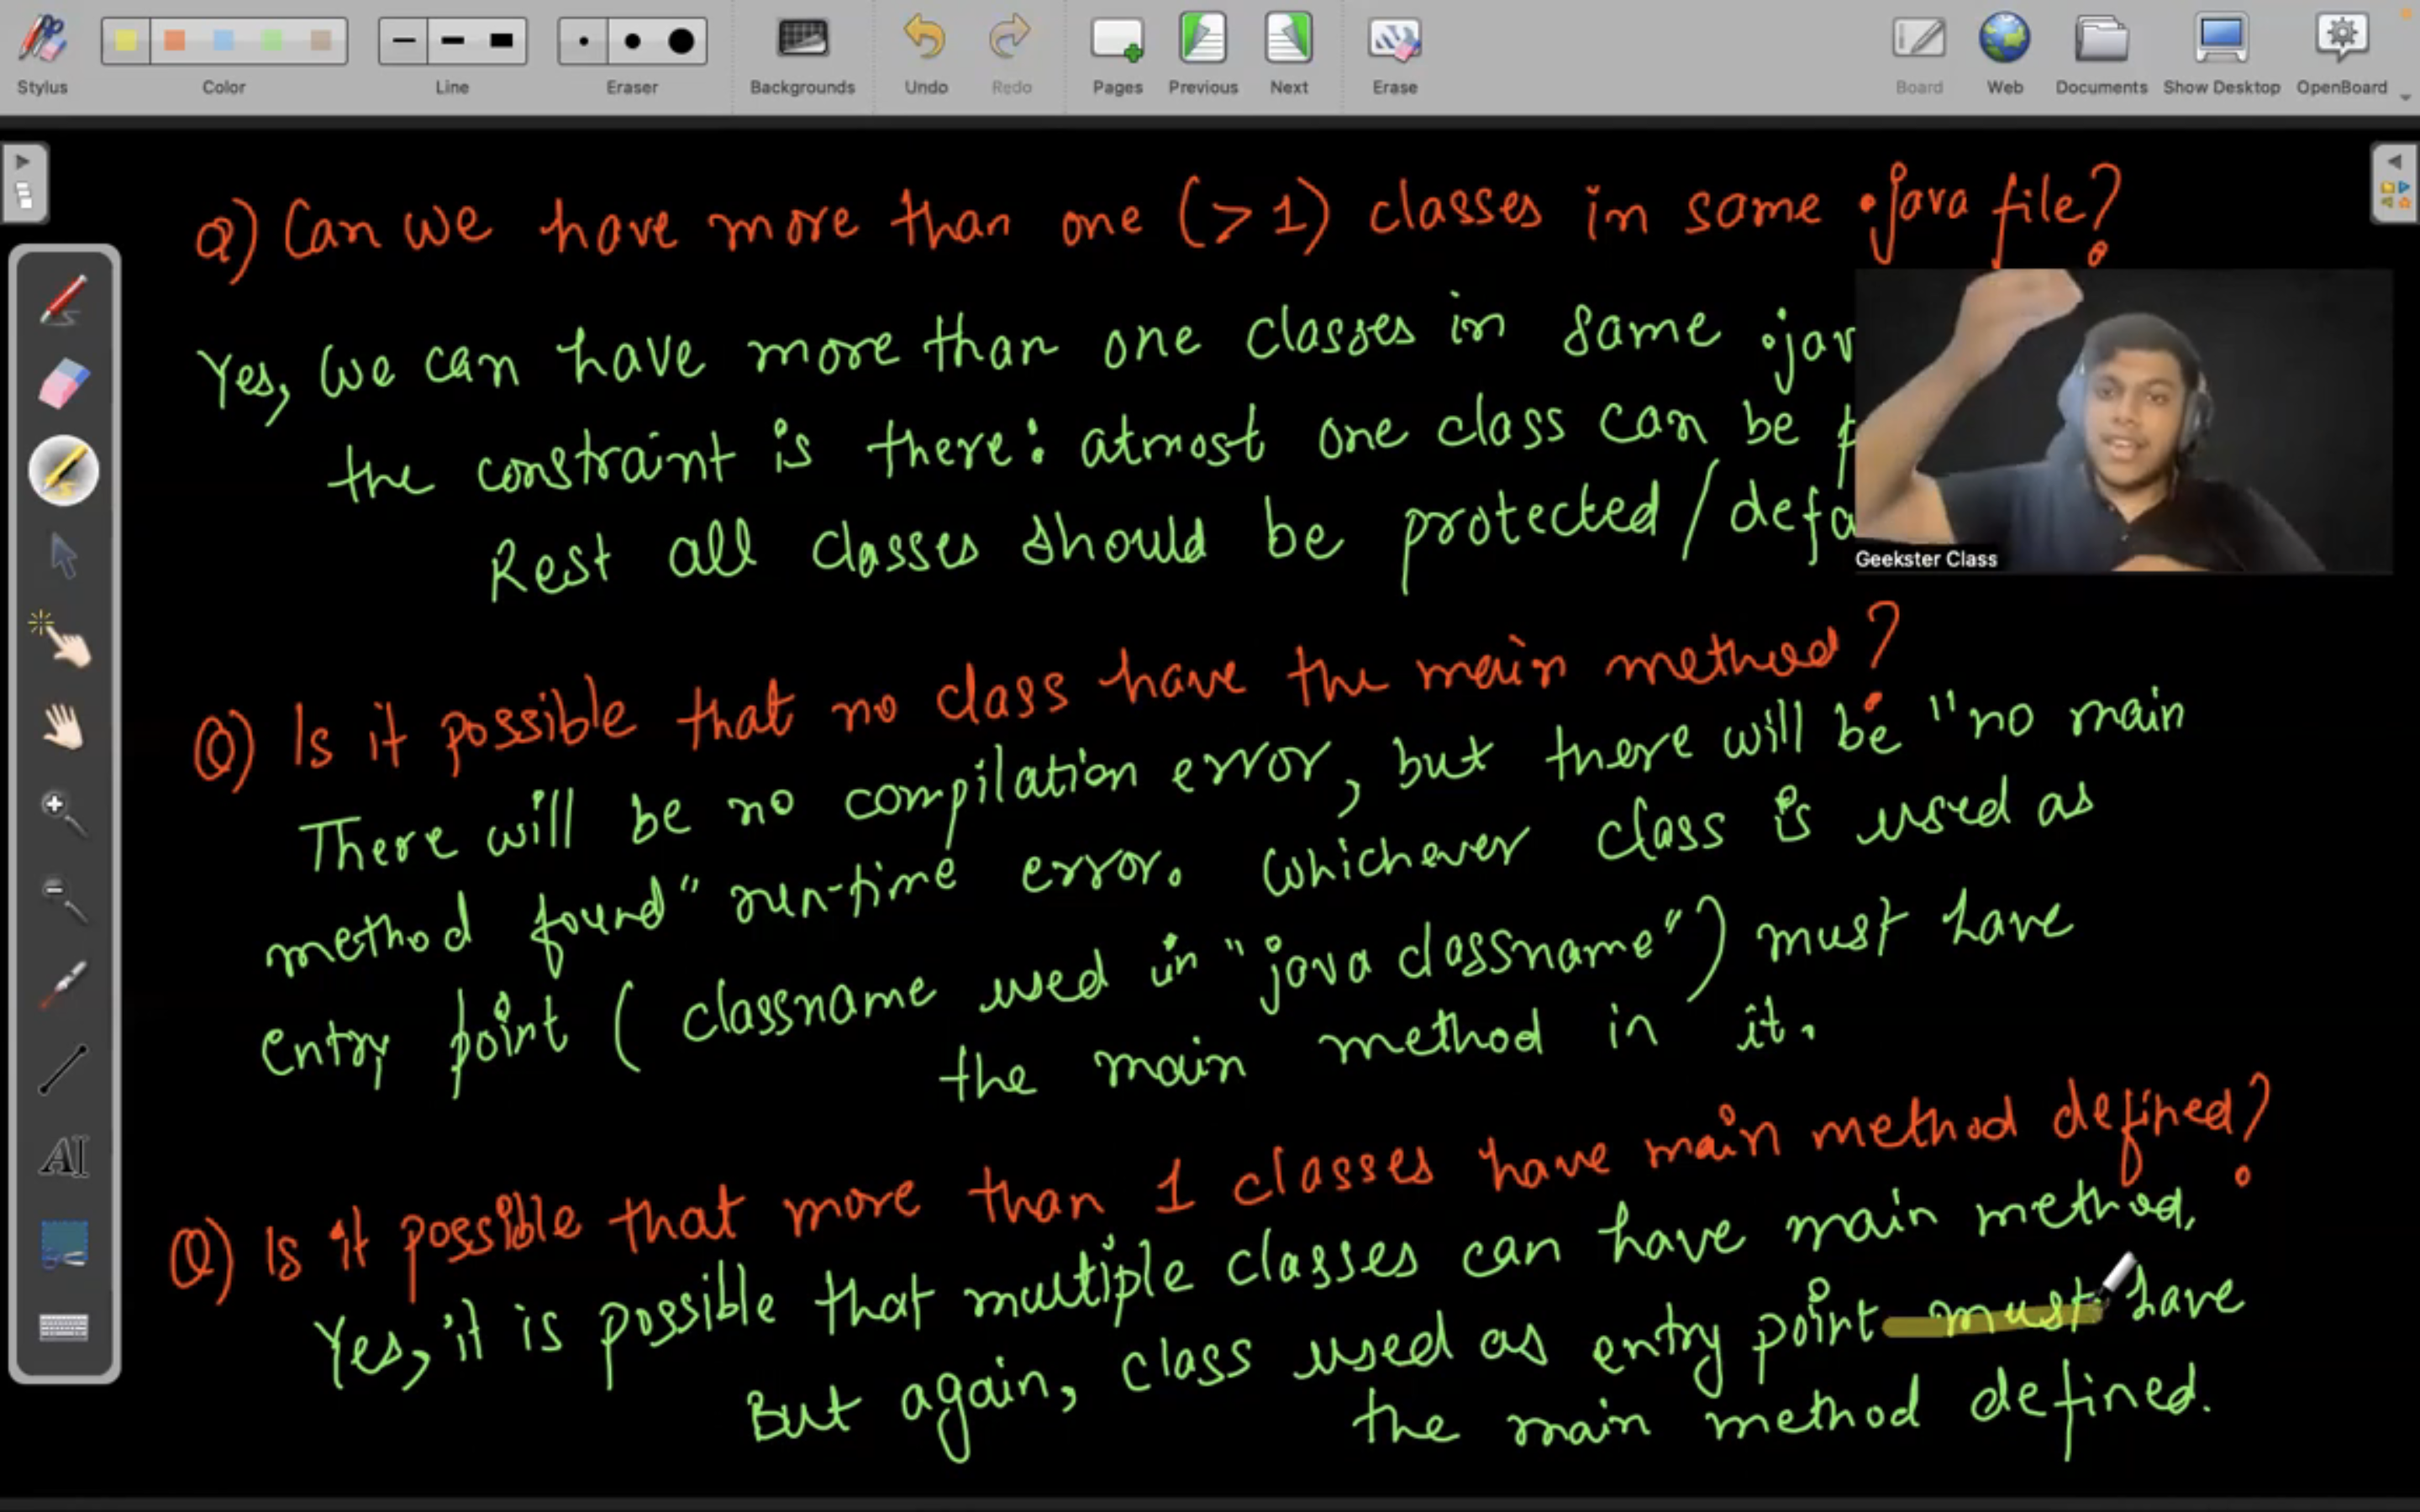 Stylus Color Line Eraser Backgrounds Undo Redo Pages Previous Next Erase Board Web Documents Show Desktop OpenBoard
Q) Can we have more than one (>1) classes in same .java file?
Yes, we can have more than one classes in same .jav
the constraint is there: atmost one class can be
Rest all classes should be protected/defa
Geekster Class
Q) Is it possible that no class have the main method?
There will be no compilation error, but there will be "no main
method found" run-time error. Whichever class is used as
entry point (classname used in "java classname") must have
the main method in it.
Q) Is it possible that more than 1 classes have main method defined?
Yes, it is possible that multiple classes can have main method.
But again, class used as entry point must have
the main method defined.
AI